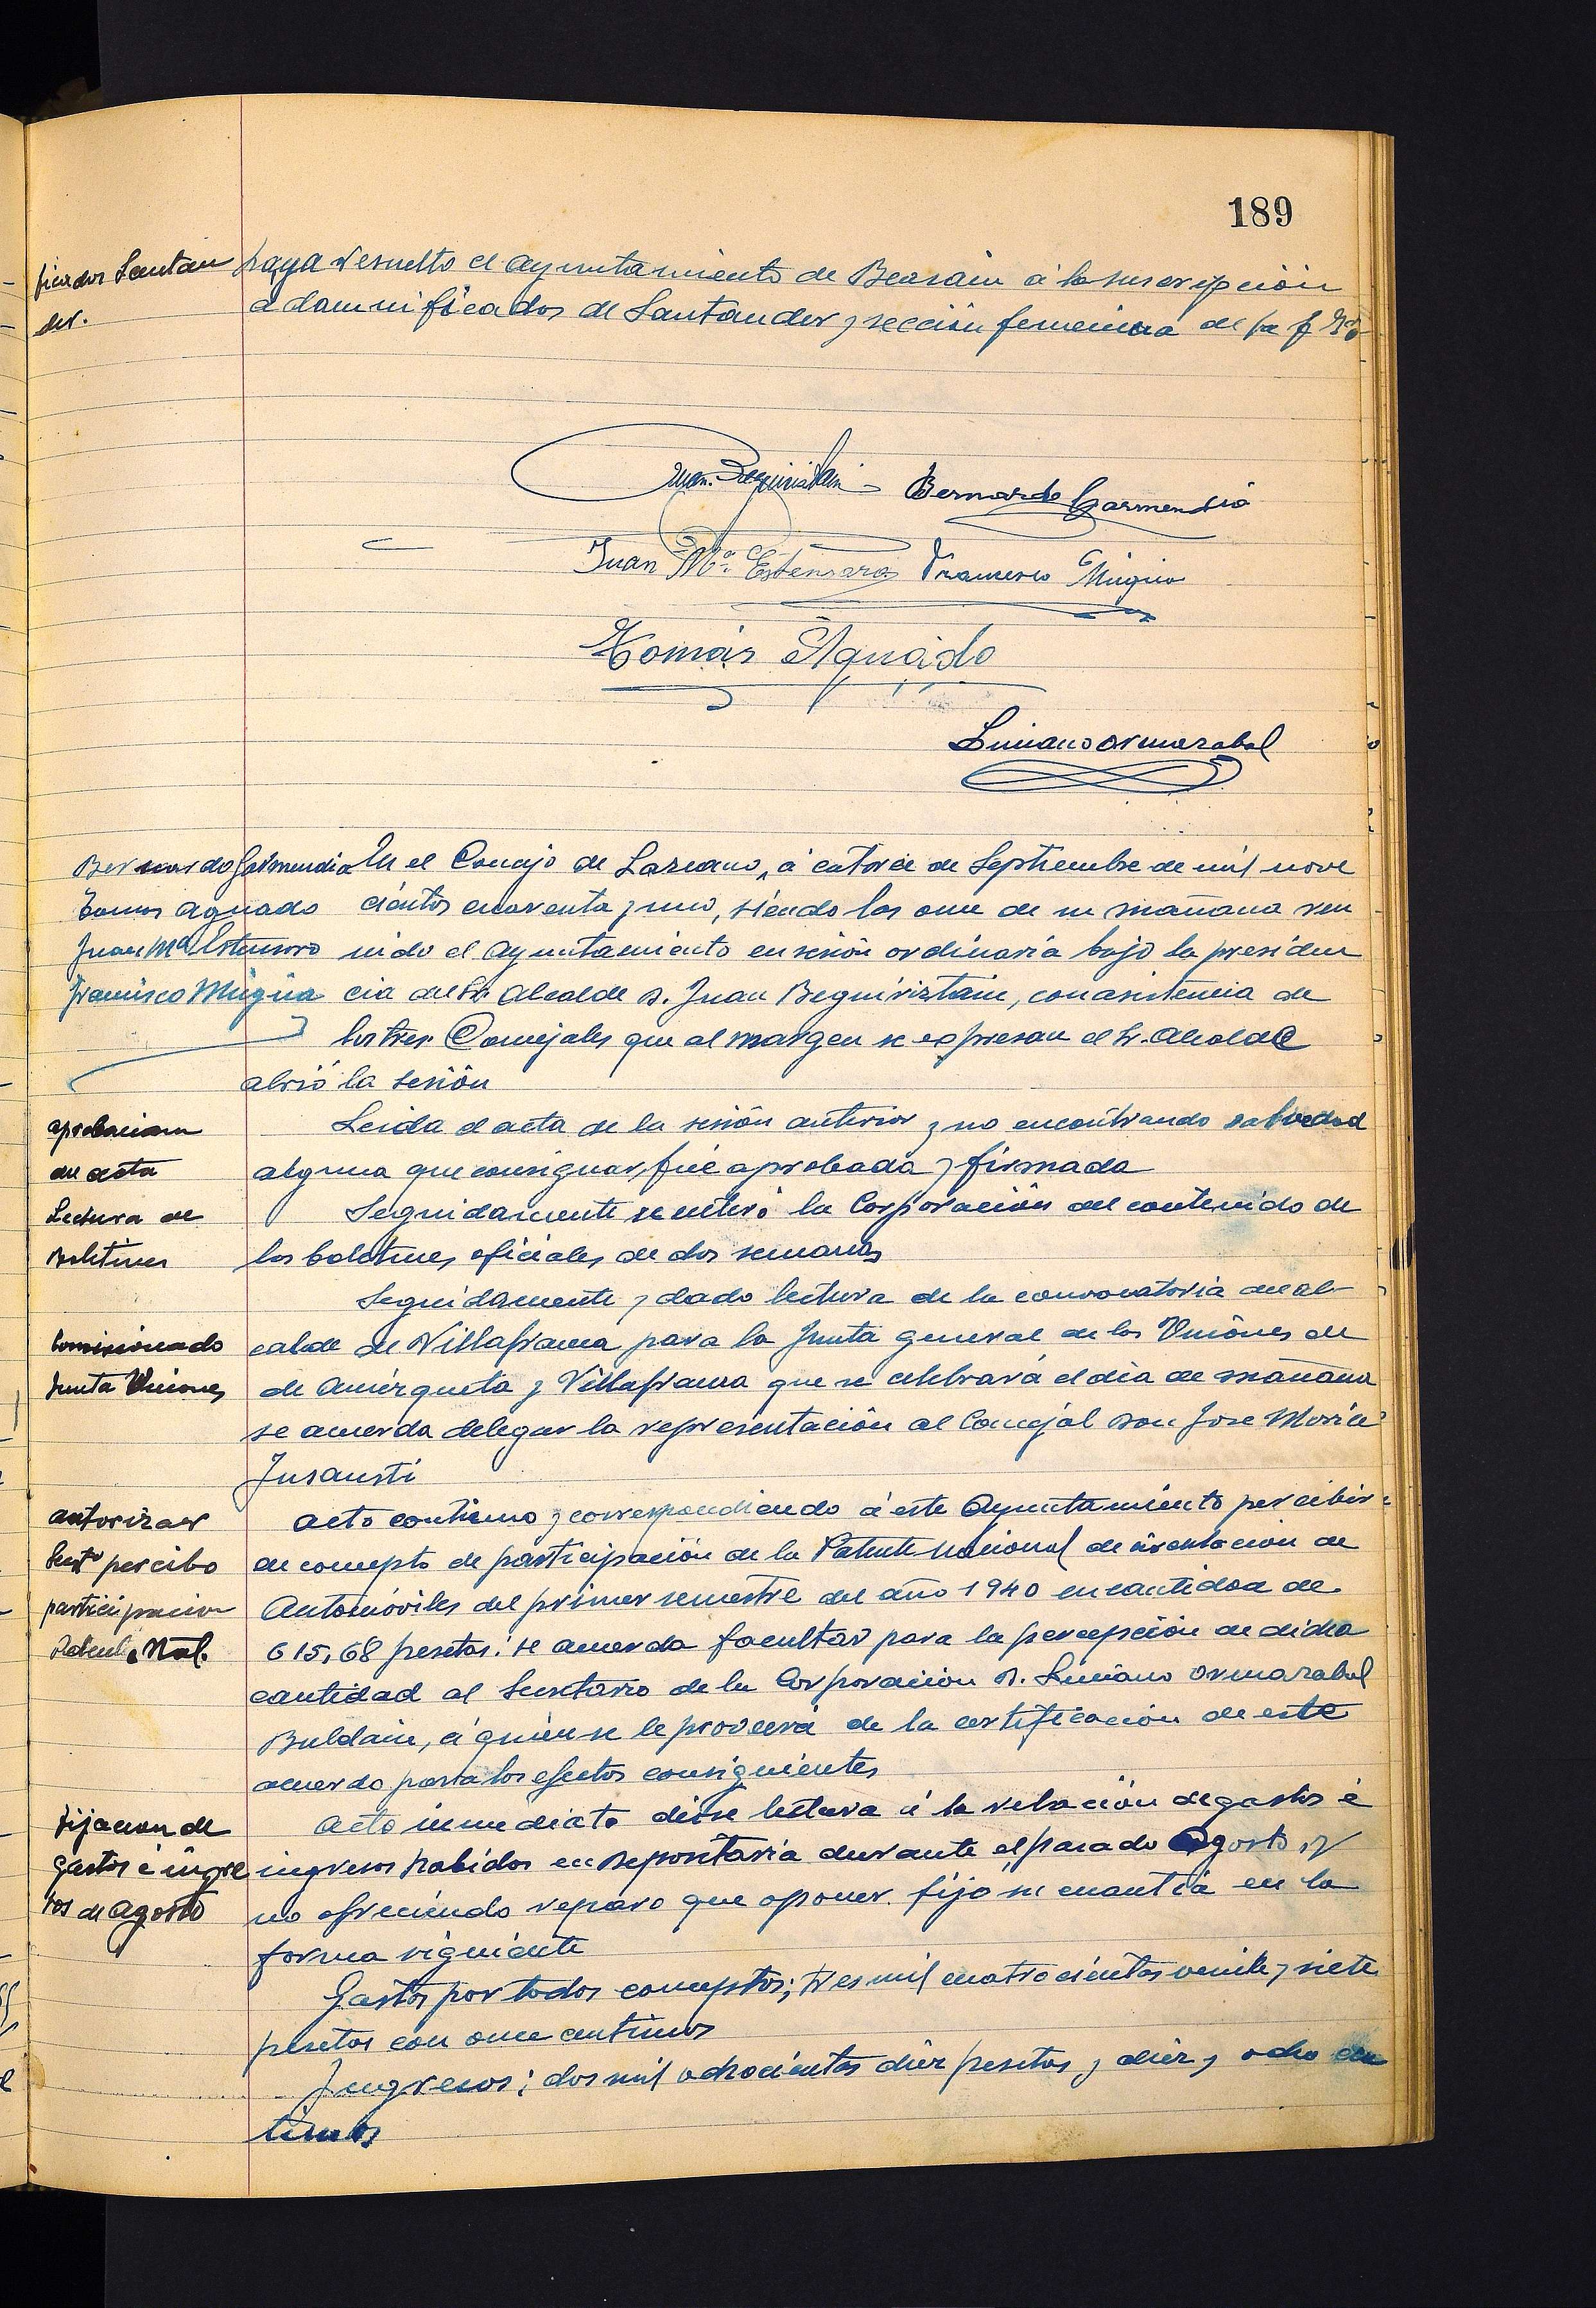 189
ficados Santan
der.
haya resuelto el Ayuntamiento de Beasain á la suscripción
a damnificados de Santander y sección femenina de la f
Juan Beguiristain Bernardo Garmendia
Juan Mª Estensoro Francisco Mugica
Tomás Aguado
Luciano Ormazabal
Bernardo Garmendia
Tomas Aguado
Juan Mª Estensoro
Francisco Mugica
En el Concejo de Lazcano, á catorce de Septiembre de mil nove
cientos cuarenta y uno, siendo las once de su mañana reu
nido el Ayuntamiento en sesión ordinaria bajo la presiden
cia del Sr. Alcalde D. Juan Beguiristain, con asistencia de
los tres Concejales que al margen se expresan el Sr. Alcalde
abrió la sesión
aprobacion
del acta
Leida el acta de la sesión anterior y no encontrando salvedad
alguna que consignar, fué aprobada y firmada
Lectura de
Boletines
Seguidamente se enteró la Corporación del contenido de
los boletines oficiales de dos semanas
Comisionado
Junta Uniones
Seguidamente y dado lectura de la convocatoria del al-
calde de Villafranca para la Junta general de las Uniones de
de Amézqueta y Villafranca que se celebrará el día de mañana
se acuerda delegar la representación al Concejal Don Jose Maria
Insausti
autorizar
Sectº percibo
participacion
Patente Nal.
acto continuo y correspondiendo á este Ayuntamiento percibir
en concepto de participación de la Patente Nacional de circulacion de
Automóviles del primer semestre del año 1940 en cantidad de
615,68 pesetas: se acuerda facultar para la percepción de dicha
cantidad al Secretario de la Corporacion D. Luciano Ormazabal
Buldain, á quien se le proveerá de la certificacion de este
acuerdo para los efectos consiguientes
Fijacion de
gastos é ingre
sos de agosto
Acto inmediato dióse lectura á la relación de gastos é
ingresos habidos en Depositaria durante el pasado Agosto, y
no ofreciendo reparo que oponer fijó su cuantía en la
forma siguiente
Gastos por todos conceptos; tres mil cuatrocientas veinte y siete
pesetas con once centimos
Ingresos; dos mil ochocientas diez pesetas y diez y ocho cen
timos